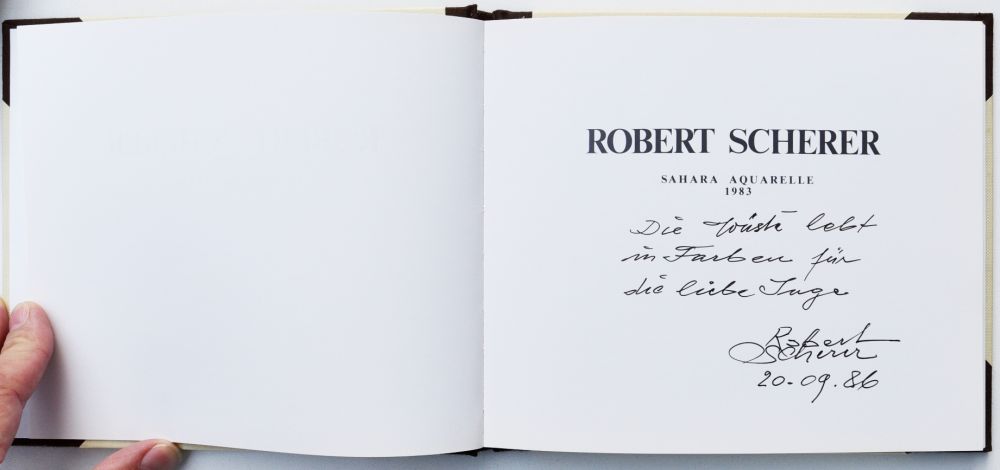 ROBERT SCHERER
SAHARA AQUARELLE
1983
Die Wüste lebt
in Farben für
die liebe Inge
Robert
Scherer
20.09.86